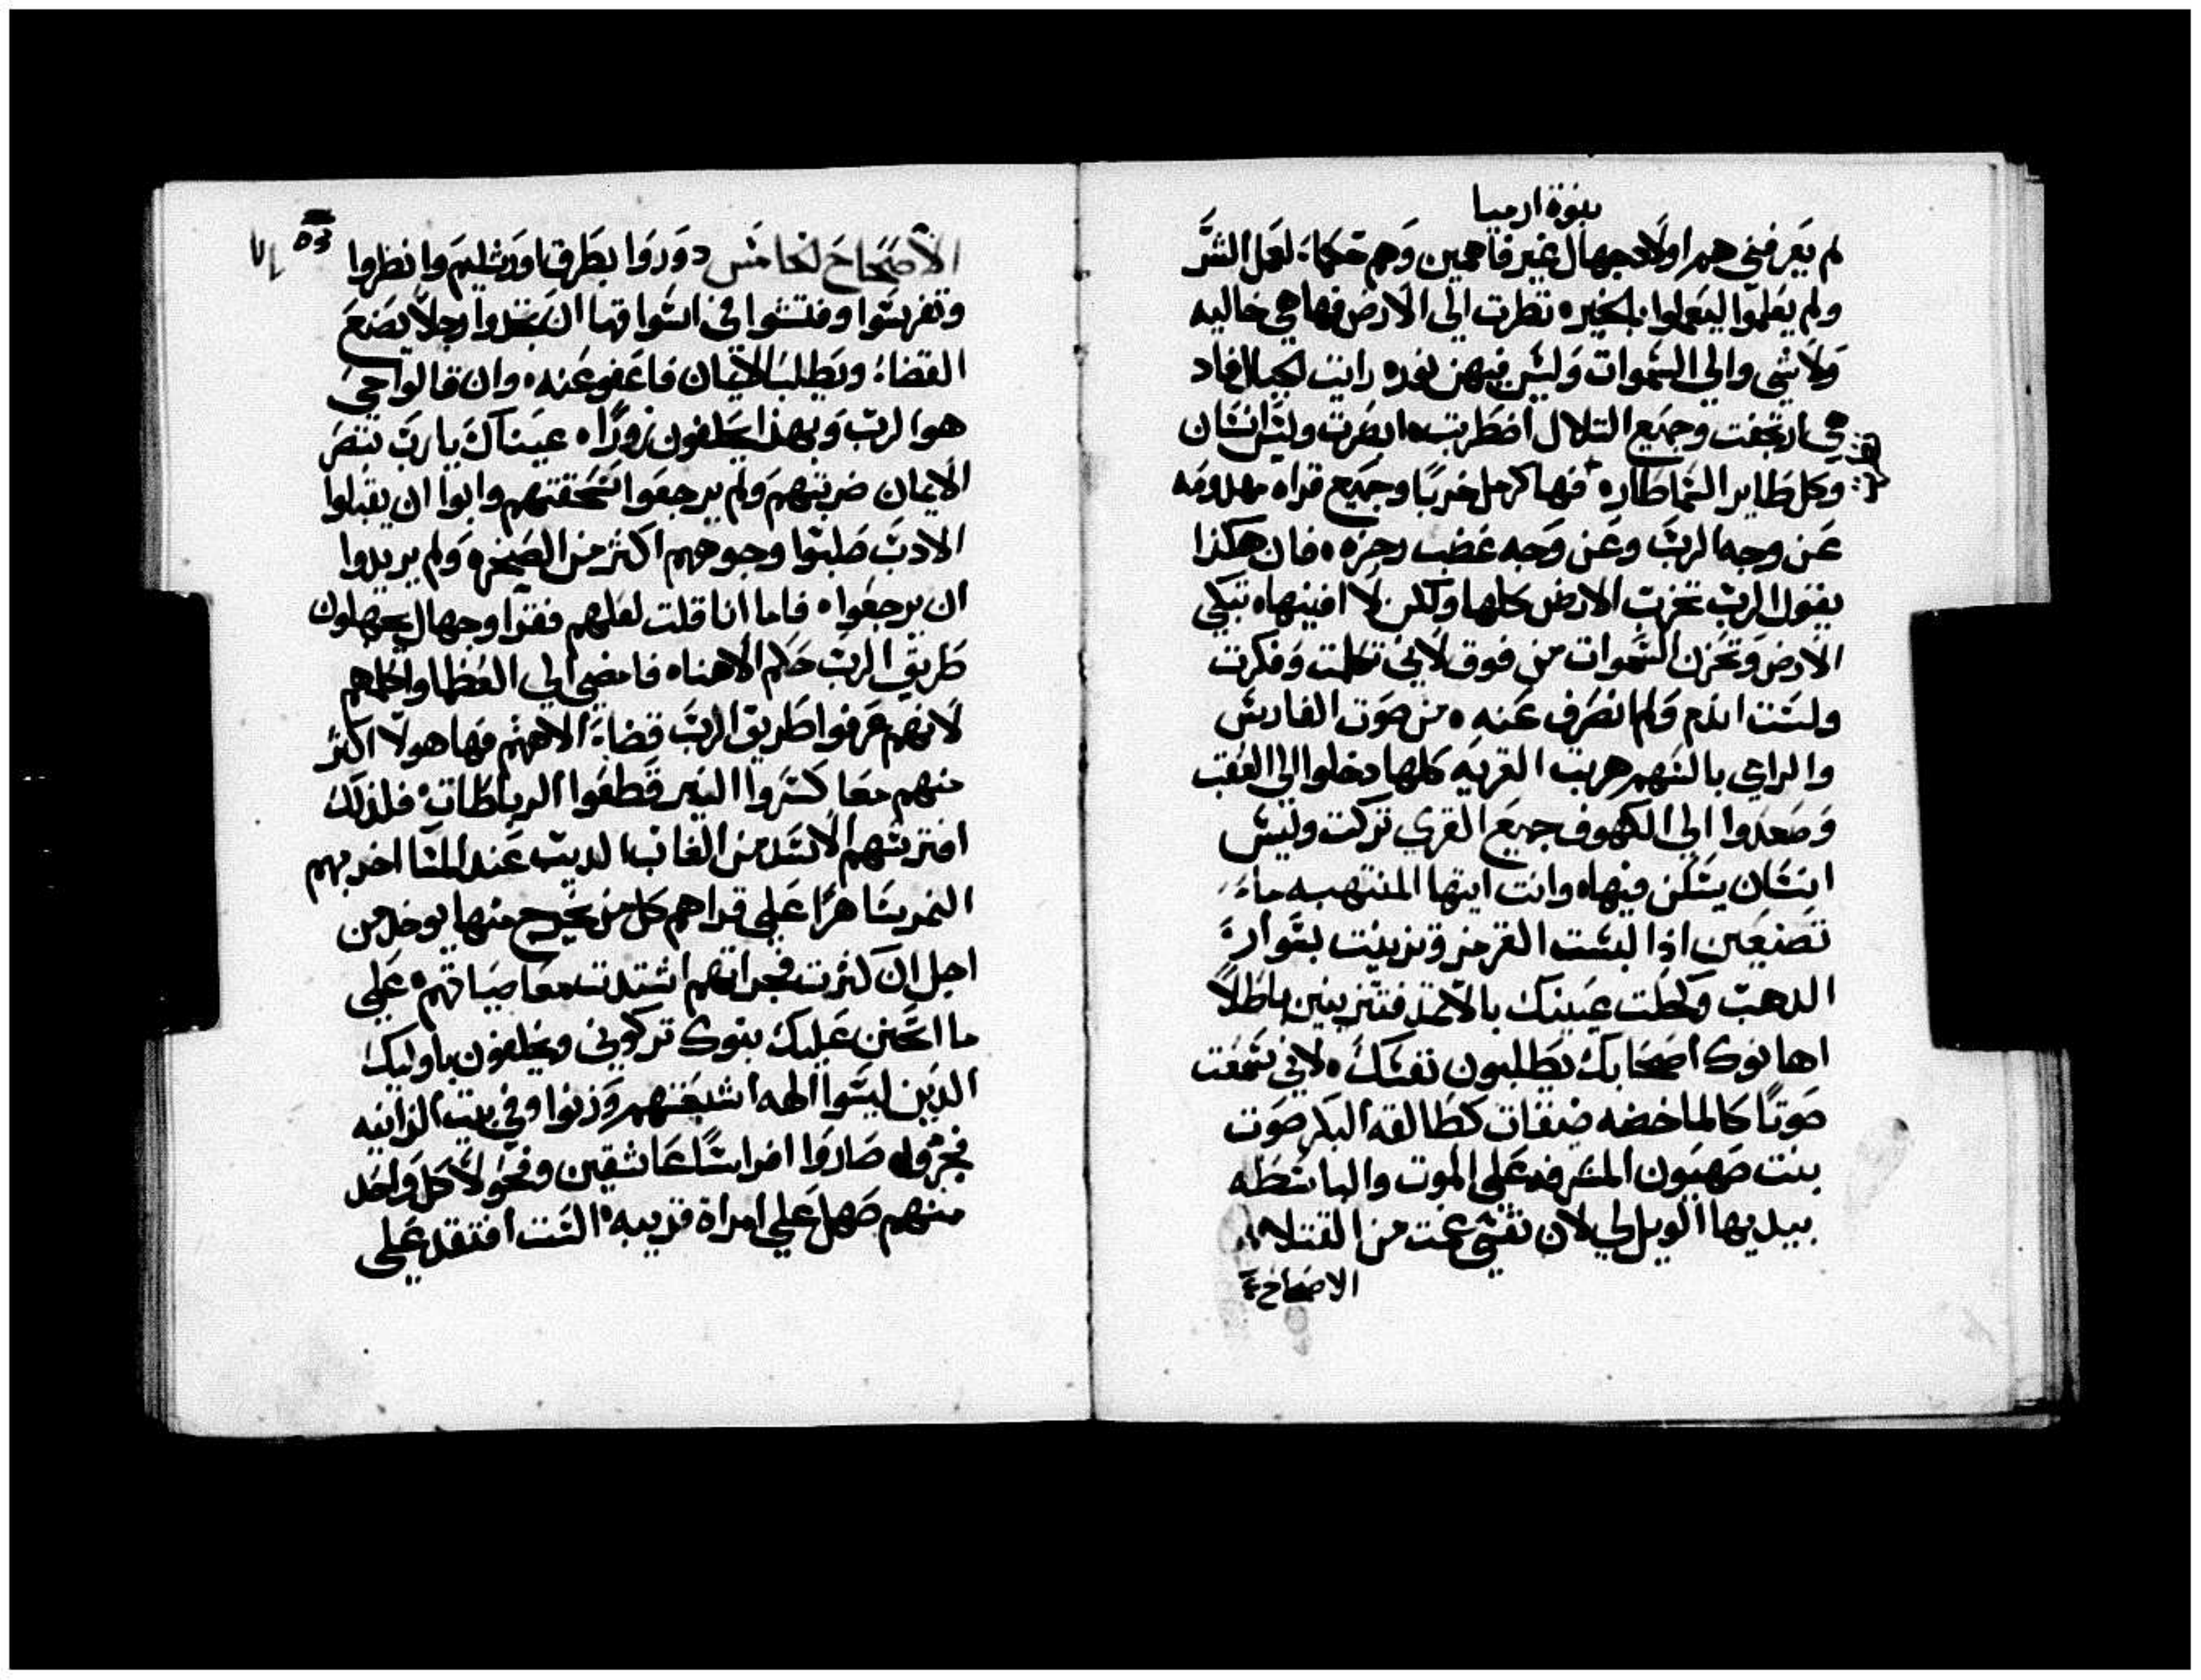 نبوة ارميا
لم يعرفني هم اولاد جهال غير فاهمين وهم حكماء لعمل الشر
ولم يعلموا ليعملوا بالخير نظرت الي الارض فها هي خاليه
ولا شي والي السموات وليس فيهن نور رايت الجبال فاذ
هي ارتجفت وجميع التلال اضطربت ابصرت وليس انسان
وكل طاير السما طار فها كرمل خربا وجميع قراه مهدومه
عن وجه الرب وعن وجه غضب رجزه فان هكذا
يقول الرب تخرب الارض كلها ولكن لا افنيها تبكي
الارض وتحزن السموات من فوق لاني تكلمت وفكرت
ولست اندم ولم انصرف عنه من صوت الفارس
والرامي بالسهم هربت القريه كلها دخلوا الي العقب
وصعدوا الي الكهوف جميع القري تركت وليس
انسان يسكن فيها وانت ايتها المنتهبه ماء
تصنعين اذا لبست القرمز وتزينت بسوارة
الدهب وكحلت عينيك بالاثمد فتتزينين باطلاً
اهانوك اصحابك يطلبون نفسك لاني سمعت
صوتا كالماخضه ضيقات كطالقه البكر صوت
بنت صهيون المشرفه علي الموت والباسطه
بيديها الويل لي لان نفسي عجت من القتلا
الاصحاح
٥٣
الاصحاح الخامس دوروا بطرق اورشليم وانظروا
وتفرسوا وفتشوا في اسواقها ان تجدوا رجلاً يصنع
القضاء ويطلب الايمان فاعفو عنه وان قالوا حي
هو الرب وبهذا يحلفون زورا عيناك يا رب تنصر
الايمان ضربتهم ولم يرجعوا سحقتهم وابوا ان يقبلوا
الادب صلبوا وجوههم اكثر من الصخره ولم يريدوا
ان يرجعوا فاما انا قلت لعلهم فقرا وجهال يجهلون
طريق الرب حكم الاهنا فامضي الي العظما واكلمهم
لانهم عرفوا طريق الرب قضاء الاههم فها هولا اكثر
منهم معا كسروا النير قطعوا الرباطات فلذلك
افترسهم الاسد من الغاب الديب عند المسا اخربهم
النمر ساهرًا علي قراهم كل من يخرج منها يوخد من
اجل ان كثرت فجراتهم اشتدت معاصياتهم علي
ما اتحنن عليك بنوك تركوني ويحلفون باوليك
الدين ليسوا الهه اشبعتهم وزنوا وفي بيت الزانيه
فجروا صاروا افراسًا عاشقين وفحولاً كل واحد
منهم صهل علي امراة قريبه الست افتقد علي